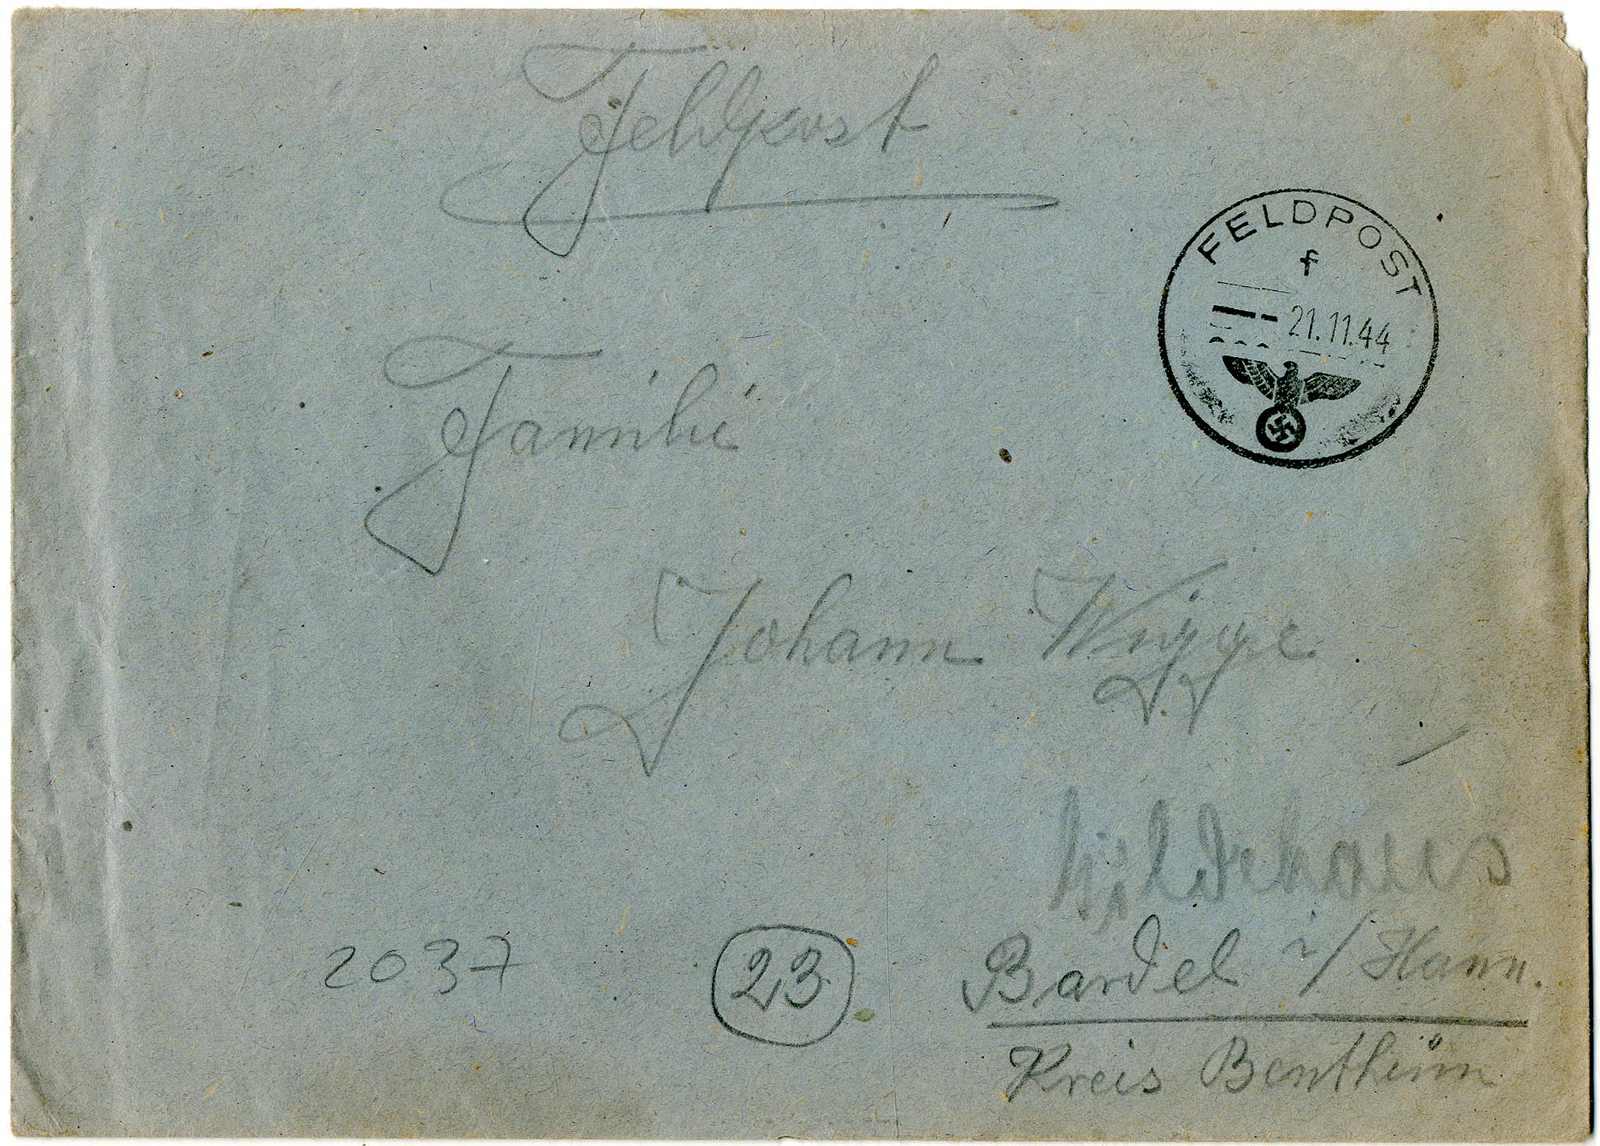 Feldpost
FELDPOST
f
21.11.44
Familie
Johann Wigge
hildehaus
2037
23
Bardel i/Hann.
Kreis Bentheim